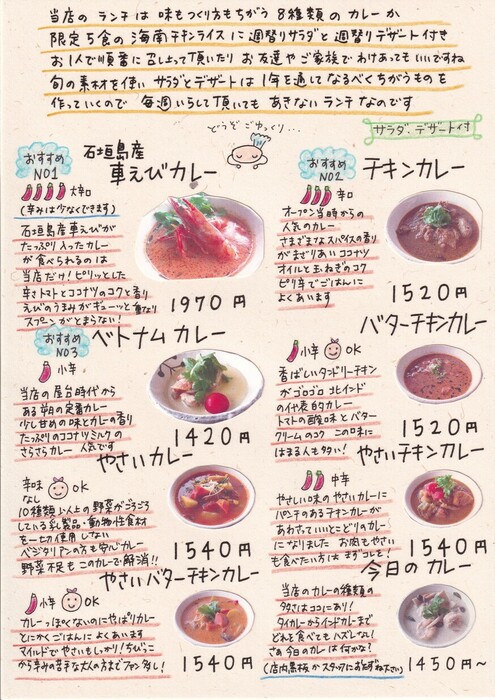 当店の ランチは 味もつくり方もちがう 8種類の カレーか
限定5食の 海南チキンライスに 週替りサラダと週替りデザート付き
お1人で順番に 召し上って頂いたり お友達やご家族でわけあってもいいですね
旬の素材を使い サラダとデザートは 1年を通してなるべくちがうものを
作っていくので 毎週いらして頂いても あきないランチなのです
どうぞごゆっくり…
サラダ、デザート付
おすすめ NO1
石垣島産
車えびカレー
大辛
(辛みは少なくできます)
石垣島産車えびが
たっぷり入ったカレー
が食べられるのは
当店だけ!ピリッとした
辛さトマトとココナツのコクと香り
えびのうまみがギューッと重なり
スプーンがとまらない!
1970円
おすすめ NO2
チキンカレー
辛口
オープン当時からの
人気のカレー
さまざまなスパイスの香り
がまざりあい ココナツ
オイルと玉ねぎのコク
ピリ辛でごはんに
よくあいます
1520円
おすすめ NO3
ベトナムカレー
小辛
当店の屋台時代から
ある幻の定番カレー
少し甘めの味とカレーの香り
たっぷりのココナツミルクの
さらさらカレー 人気です
1420円
バターチキンカレー
小辛 OK
香ばしいタンドリーチキン
がゴロゴロ 北インド
の代表的カレー
トマトの酸味とバター
クリームのコク この味に
はまる人も多い!
1520円
やさいカレー
辛味なし OK
10種類以上の野菜がごろごろ
している乳製品・動物性食材
を一切使用しない
ベジタリアンの方も安心カレー
野菜不足もこのカレーで解消!!
1540円
やさいチキンカレー
中辛
やさしい味のやさいカレーに
パンチのあるチキンカレーが
あわさっていいとこどりのカレー
になりました お肉もやさい
も食べたい方は まずコレを!
1540円
やさいバターチキンカレー
小辛 OK
カレーっぽくないのにやっぱりカレー
とにかくごはんに よくあいます
マイルドで やさいもしっかり!ちびっこ
から辛みの苦手な大人の方までファン多し!
1540円
今日のカレー
当店のカレーの種類の
多さはココにあり!
タイカレーからインドカレーまで
どれを食べても ハズレなし!
さあ 今日のカレーは何かな?
(店内黒板かスタッフにおたずね下さい)
1450円〜